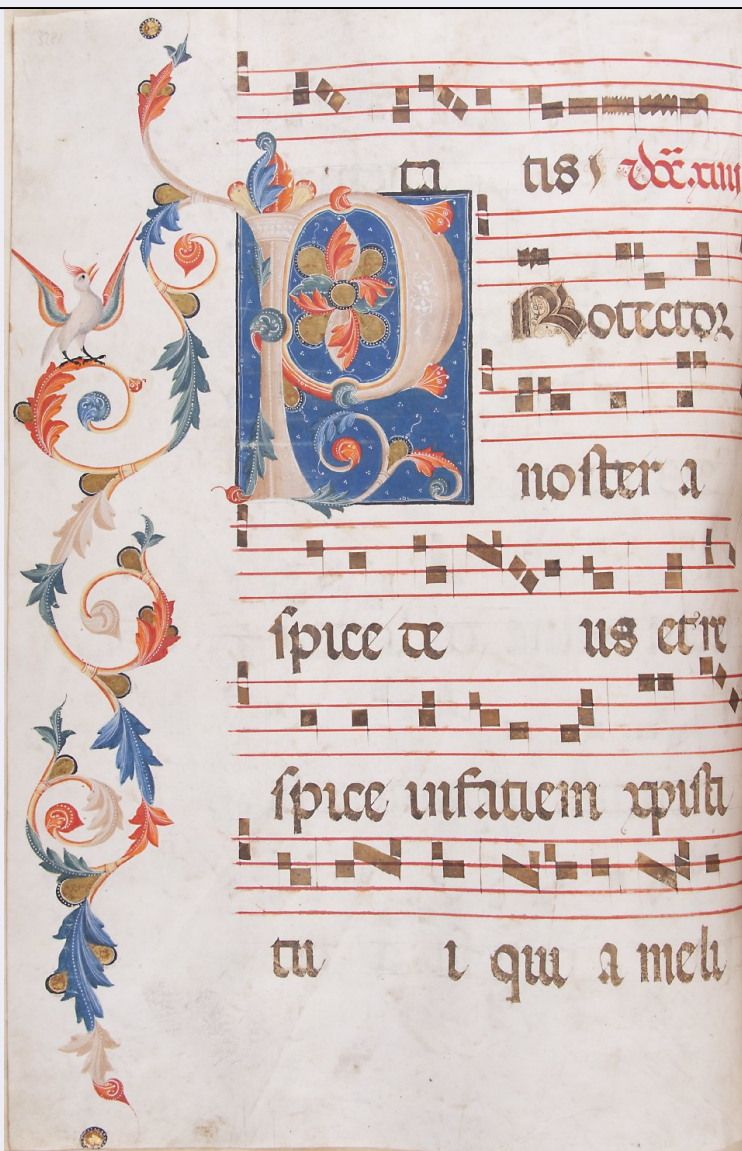 ta tis
PRotector
noster a
spice de us et re
spice in faciem xpisti
tu i qui a meli